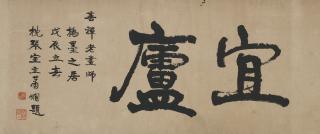 宜廬
禪老畫師
墨之居
戊辰立春
枕琴室主蕭嫻題